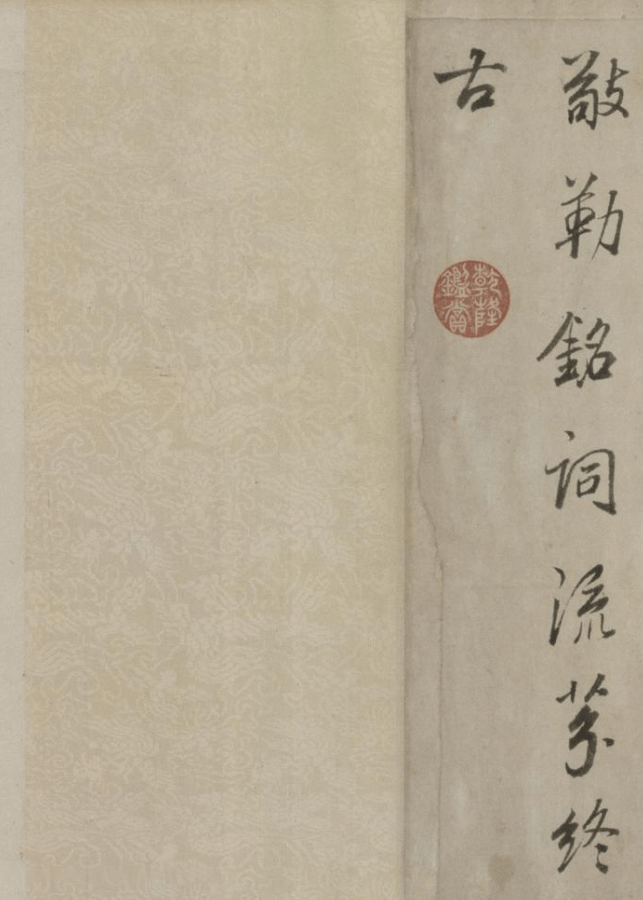 敢勒銘詞流芬終
古
乾隆
鑑賞